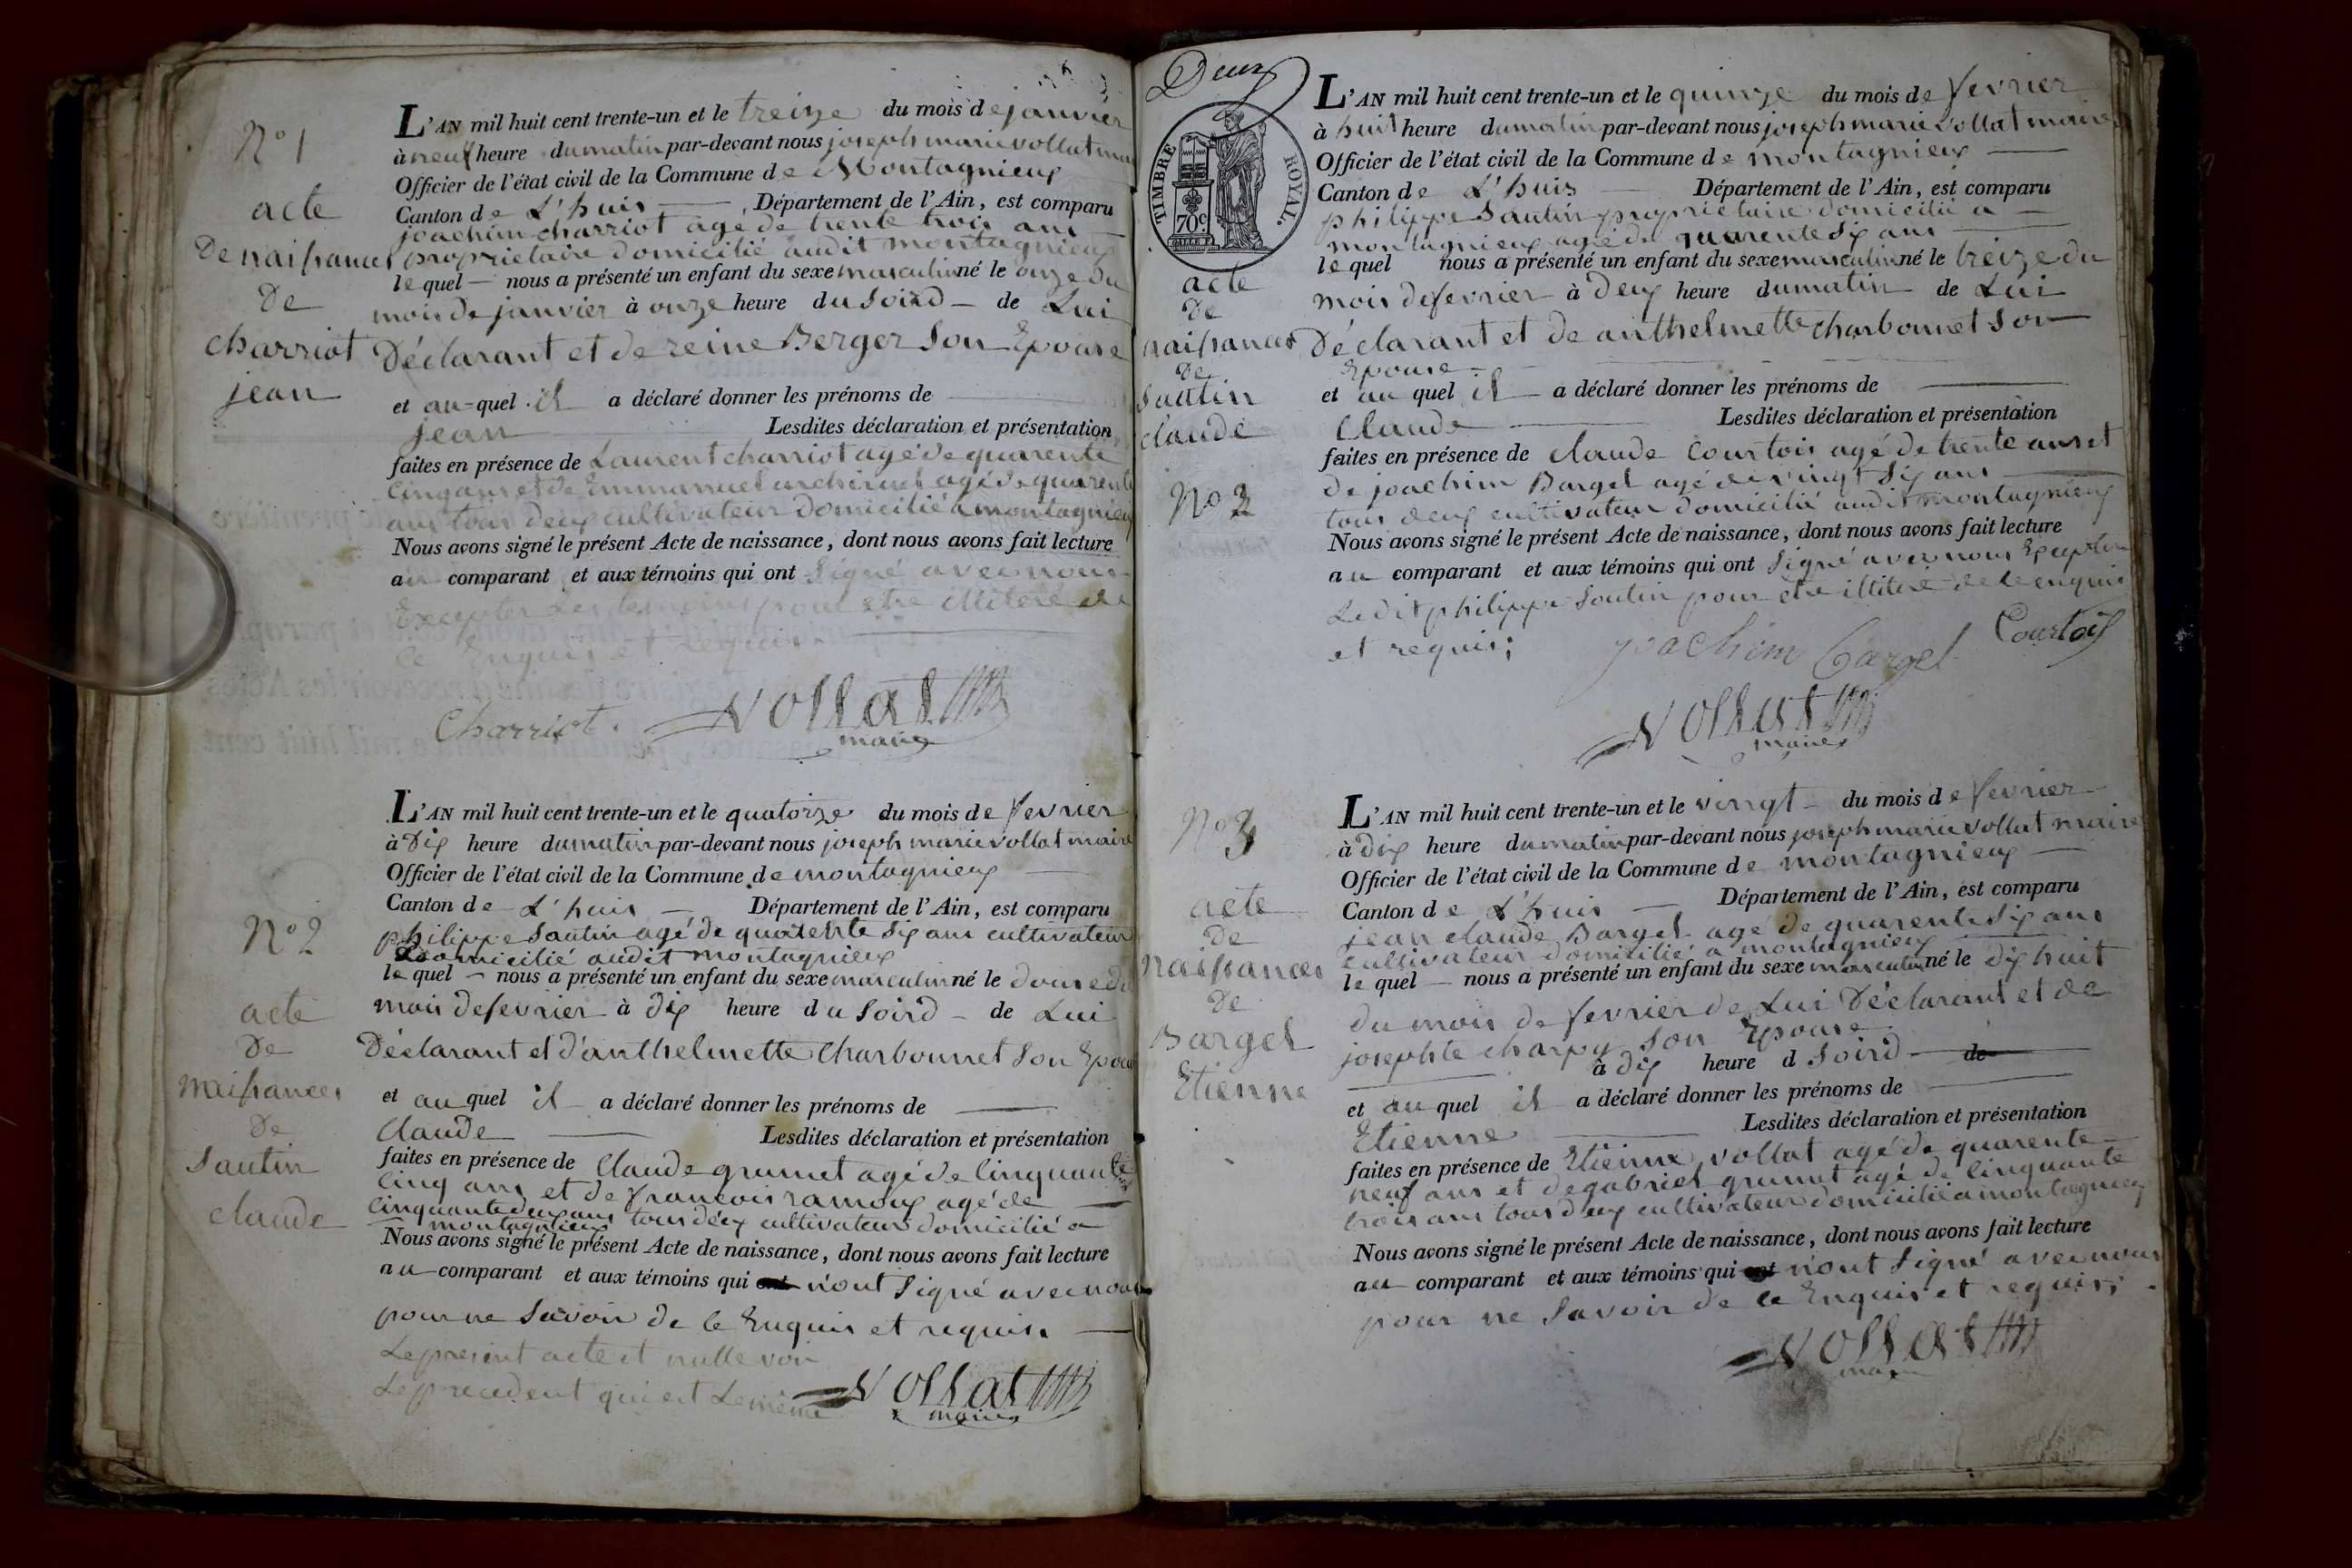 N° 1
acte
De naissances
De
charriot
jean
L'AN mil huit cent trente-un et le treize du mois de janvier
à neuf heure du matin par-devant nous joseph marie vollat
Officier de l'état civil de la Commune de Montagnieux
Canton de L'huis Département de l'Ain, est comparu
joachim charriot agé de trente trois ans
proprietaire domicilié audit montagnieux
le quel nous a présenté un enfant du sexe masculin né le onze du
mois de janvier à onze heure du soird de Lui
Déclarant et de reine Berger Son Epouse
et au quel il a déclaré donner les prénoms de
jean Lesdites déclaration et présentation
faites en présence de Laurent charriot agé de quarente
cinq ans et de Emmanuel agé de quarente
ans tous deux cultivateur domicilié a montagnieux
Nous avons signé le présent Acte de naissance, dont nous avons fait lecture
au comparant et aux témoins qui ont Signé avec nous
Excepter Les temoins pour etre illiteré de
ce Enquis et requis
Charriot. Vollat
maire
N° 2
acte
De
naissances
De
Sautin
claude
L'AN mil huit cent trente-un et le quatorze du mois de fevrier
à Dix heure du matin par-devant nous joseph marie vollat maire
Officier de l'état civil de la Commune de montagnieux
Canton de L'huis Département de l'Ain, est comparu
philippe Sautin agé de quarente Six ans cultivateur
Domicilié audit montagnieux
le quel nous a présenté un enfant du sexe masculin né le douse du
mois de fevrier à dix heure du Soird de Lui
Déclarant et d'anthelmette Charbonnet Son Epouse
et au quel il a déclaré donner les prénoms de
Claude Lesdites déclaration et présentation
faites en présence de Claude grumet agé de Cinquante
Cinq ans et de francois ramoux agé de
cinquante deux ans tous deux cultivateur domicilié a
montagnieux
Nous avons signé le présent Acte de naissance, dont nous avons fait lecture
au comparant et aux témoins qui ont n'ont Signé avec nous
pour ne Savoir de ce Enquis et requis.
Le present acte et nulle voir
Le precedent qui est Le même
Vollat
maire
Deux
TIMBRE ROYAL.
70c.
acte
De
naissances
De
Sautin
claude
N° 2
L'AN mil huit cent trente-un et le quinze du mois de fevrier
à huit heure du matin par-devant nous joseph marie vollat maire
Officier de l'état civil de la Commune de montagnieux
Canton de L'huis Département de l'Ain, est comparu
philippe Sautin proprietaire domicilié a
montagnieux agé de quarente Six ans
le quel nous a présenté un enfant du sexe masculin né le treize du
mois de fevrier à Deux heure du matin de Lui
Déclarant et de anthelmette charbonnet Son
Epouse
et au quel il a déclaré donner les prénoms de
Claude Lesdites déclaration et présentation
faites en présence de Claude Courtois agé de trente ans et
de joachim Barget agé de vingt Six ans
tous deux cultivateur domicilié audit montagnieux
Nous avons signé le présent Acte de naissance, dont nous avons fait lecture
au comparant et aux témoins qui ont Signé avec nous Excepter
Ledit philippe Soutin pour etre illiteré de ce enquis
et requis;
joachim Barget Courtois
Vollat
maire
N° 3
acte
De
naissances
De
Barget
Etienne
L'AN mil huit cent trente-un et le vingt du mois de fevrier
à dix heure du matin par-devant nous joseph marie vollat maire
Officier de l'état civil de la Commune de montagnieux
Canton de L'huis Département de l'Ain, est comparu
jean claude Barget agé de quarente Six ans
cultivateur domicilié a montagnieux
le quel nous a présenté un enfant du sexe masculin né le dix huit
du mois de fevrier de Lui Déclarant et de
josephte charpy Son Epouse
à dix heure d Soird de
et au quel il a déclaré donner les prénoms de
Etienne Lesdites déclaration et présentation
faites en présence de Etienne vollat agé de quarente
neuf ans et de gabriel grumet agé de Cinquante
trois ans tous deux cultivateur domicilié a montagnieux
Nous avons signé le présent Acte de naissance, dont nous avons fait lecture
au comparant et aux témoins qui ont n'ont Signé avec nous
pour ne Savoir de ce Enquis et requis;
Vollat